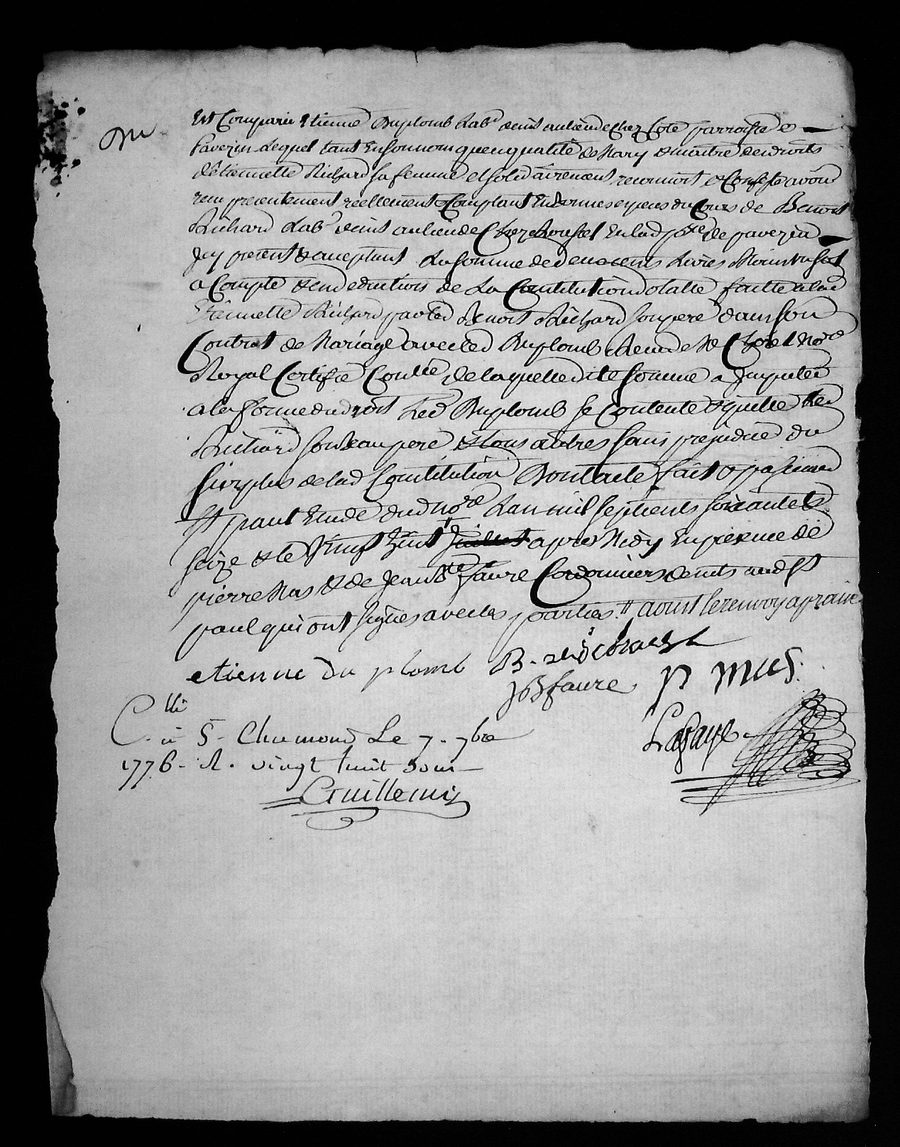 Est Comparu Etienne Duplomb Lab.r demt au lieu de Chez Cote parroisse de
Pavezin Lequel tant En son nom qu'en qualité de Mary & maitre des droits
de Etiennette Richard sa femme et solidairement reconnoit & Confesse avoir
reçu presentement reellement & Comptant En bonnes especes du Cours de Benoit
Richard Lab.r demt au lieu de Chez En lad. p.sse de pavezin
Icy present & acceptant La somme de deux cents Livres
a Compte & en deduction de La Constitution dotalle faitte a lad
Etiennette Richard par led Benoit Richard son pere dans son
Contrat de Mariage avec led Duplomb Receu de Me No.re
Royal Certifié Conllé de laquelle dite somme a Imputer
a la forme du droit Led Duplomb se Contente & quitte led
Richard son beau pere & tous autres sans prejudice du
surplus de lad Constitution Dont acte fait & passé aud
St paul Etude dud No.re L'an mil sept cents soixante &
seize & le Vingt huit juillet apres Midy En presence de
pierre Mas & de Jean B.te faure Cordonniers demts aud St
paul qui ont signés avec les parties # aoust le renvoy aprouvé
etienne du plomb B.
JB faure P mas
C.llé Lafaye
à S. Chamond Le 7. 7bre
1776. R. vingt huit sous
Guillemin